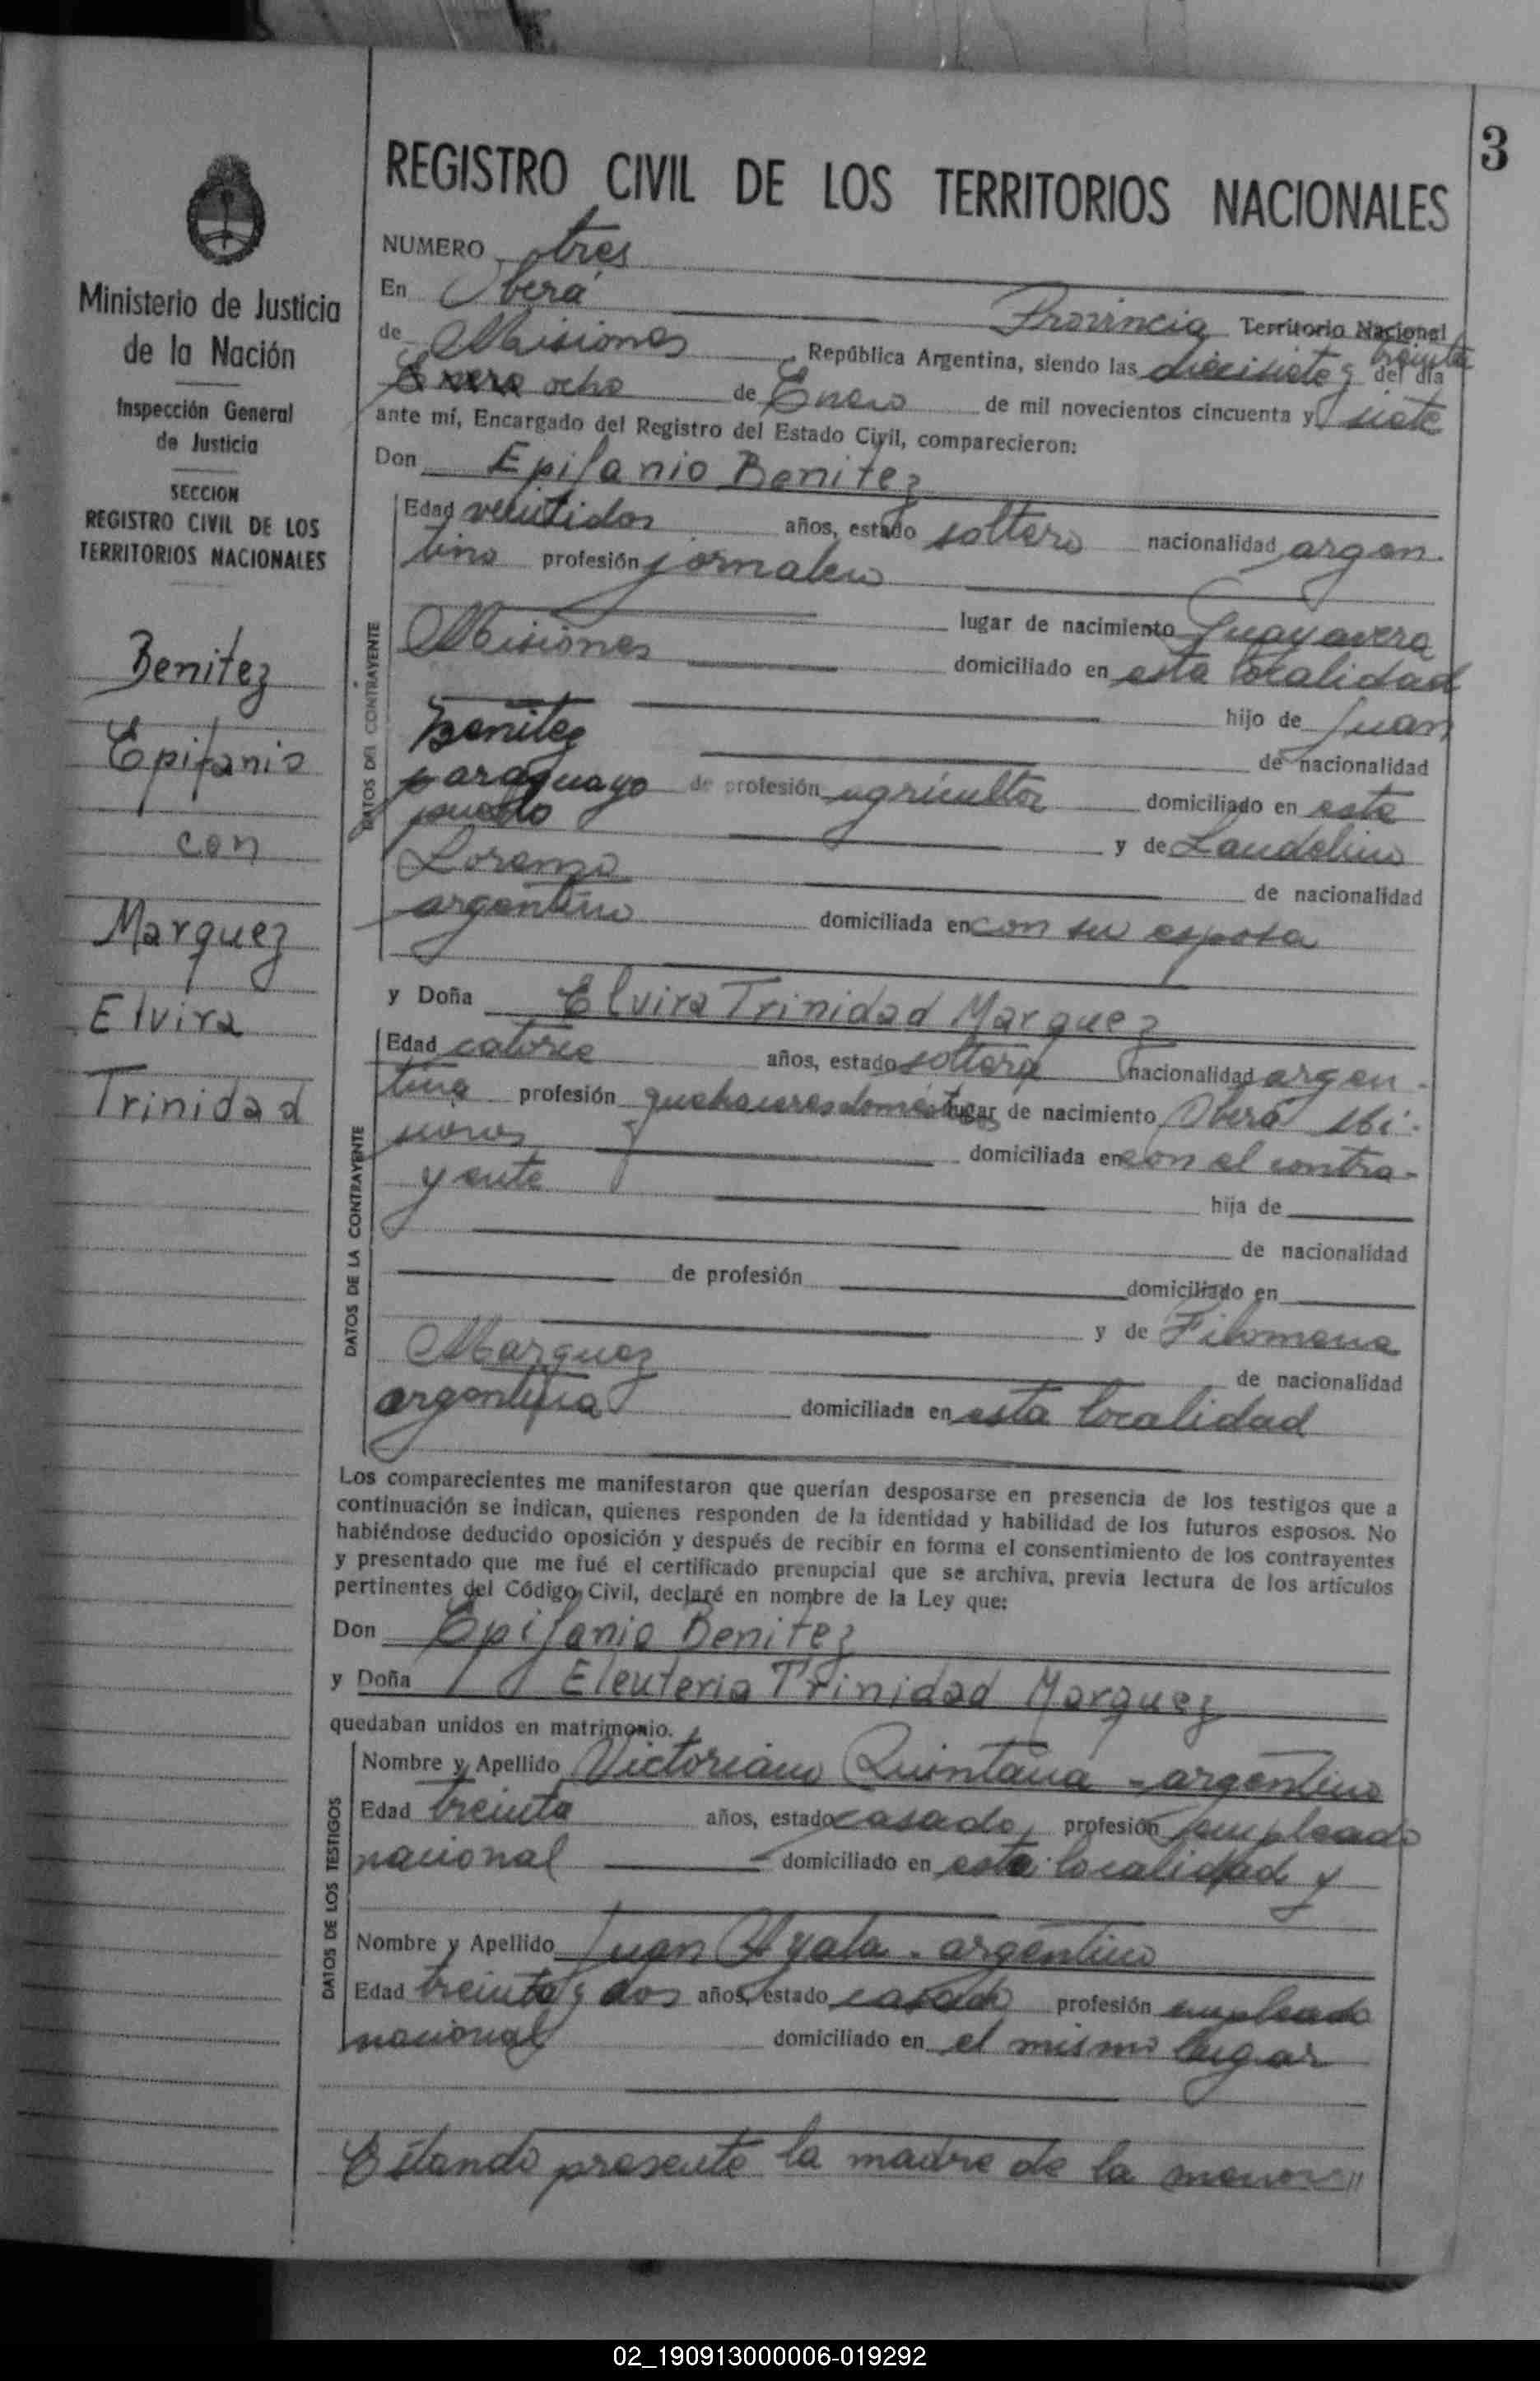 3
REGISTRO CIVIL DE LOS TERRITORIOS NACIONALES
Ministerio de Justicia
de la Nación
Inspección General
de Justicia
SECCION
REGISTRO CIVIL DE LOS
TERRITORIOS NACIONALES
Benitez
Epifanio
con
Marquez
Elvira
Trinidad
NUMERO tres
En Oberá Provincia Territorio Nacional
de Misiones República Argentina, siendo las diecisiete y treinta del día
Enero ocho de Enero de mil novecientos cincuenta y siete
ante mí, Encargado del Registro del Estado Civil, comparecieron:
Don Epifanio Benitez
DATOS DEL CONTRAYENTE
Edad veintidos años, estado soltero nacionalidad argen-
tino profesión jornalero
lugar de nacimiento Guayavera
Misiones domiciliado en esta localidad
hijo de Juan
Benitez de nacionalidad
paraguayo de profesión agricultor domiciliado en este
pueblo y de Laudelina
Lorenzo de nacionalidad
argentina domiciliada en con su esposa
y Doña Elvira Trinidad Marquez
DATOS DE LA CONTRAYENTE
Edad catorce años, estado soltera nacionalidad argen-
tina profesión quehaceres domésticos lugar de nacimiento Oberá Mi-
siones domiciliada en con el contra-
yente hija de
de nacionalidad
de profesión domiciliado en
y de Filomena
Marquez de nacionalidad
argentina domiciliada en esta localidad
Los comparecientes me manifestaron que querían desposarse en presencia de los testigos que a
continuación se indican, quienes responden de la identidad y habilidad de los futuros esposos. No
habiéndose deducido oposición y después de recibir en forma el consentimiento de los contrayentes
y presentado que me fué el certificado prenupcial que se archiva, previa lectura de los artículos
pertinentes del Código Civil, declaré en nombre de la Ley que:
Don Epifanio Benitez
y Doña Eleuteria Trinidad Marquez
quedaban unidos en matrimonio.
DATOS DE LOS TESTIGOS
Nombre y Apellido Victoriano Quintana - argentino
Edad treinta años, estado casado, profesión empleado
nacional domiciliado en esta localidad y
Nombre y Apellido Juan Ayala - argentino
Edad treinta y dos años, estado casado profesión empleado
nacional domiciliado en el mismo lugar
Estando presente la madre de la menor //
02_190913000006-019292